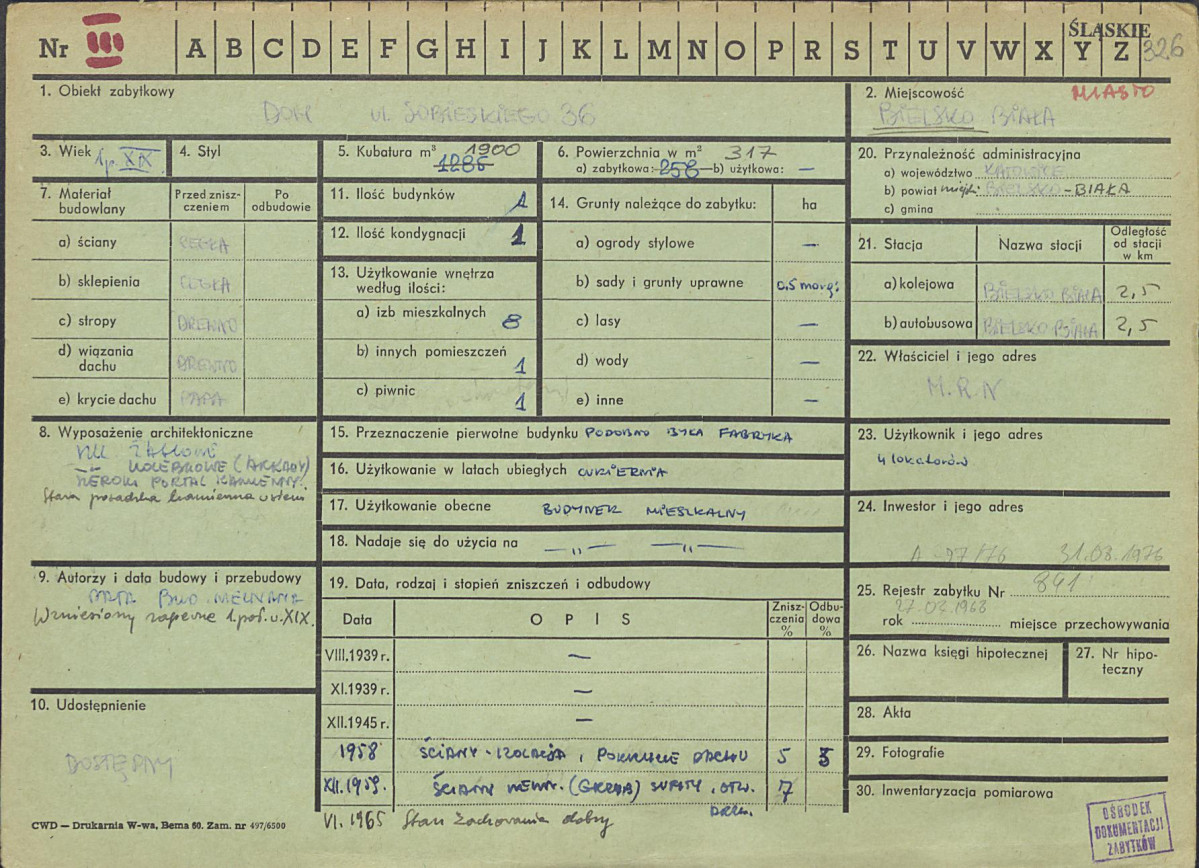 Nr III A B C D E F G H I J K L M N O P R S T U V W X Y Z
ŚLĄSKIE
326
1. Obiekt zabytkowy
DOM ul. SOBIESKIEGO 36
2. Miejscowość
MIASTO
BIELSKO BIAŁA
3. Wiek 1 p. XIX
4. Styl
5. Kubatura m³ 1900
1286
6. Powierzchnia w m² 317
a) zabytkowa: 258 b) użytkowa: —
7. Materiał budowlany
Przed zniszczeniem
Po odbudowie
a) ściany CEGŁA
b) sklepienia CEGŁA
c) stropy DREWNO
d) wiązania dachu DREWNO
e) krycie dachu PAPA
8. Wyposażenie architektoniczne
ŻAGLOWE
—„— KOLEBKOWE (ARKADY)
SZEROKI PORTAL KAMIENNY.
Stara posadzka kamienna w sieni
9. Autorzy i data budowy i przebudowy
DATA BUD. NIEZNANA
Wzniesiony zapewne 1. poł. w. XIX.
10. Udostępnienie
DOSTĘPNY
11. Ilość budynków 1
12. Ilość kondygnacji 1
13. Użytkowanie wnętrza według ilości:
a) izb mieszkalnych 8
b) innych pomieszczeń 1
c) piwnic 1
14. Grunty należące do zabytku: ha
a) ogrody stylowe —
b) sady i grunty uprawne 0,5 morg.
c) lasy —
d) wody —
e) inne —
15. Przeznaczenie pierwotne budynku PODOBNO BYŁA FABRYKA
16. Użytkowanie w latach ubiegłych CUKIERNIA
17. Użytkowanie obecne BUDYNEK MIESZKALNY
18. Nadaje się do użycia na —„— —„—
19. Data, rodzaj i stopień zniszczeń i odbudowy
Data
OPIS
Zniszczenia %
Odbudowa %
VIII.1939 r. —
XI.1939 r. —
XII.1945 r. —
1958 ŚCIANY - IZOLACJA, POKRYCIE DACHU 5 5
XII.1959. ŚCIANY WEWN. (GRZYB) SUFITY, OTW. 7
DRZW.
VI. 1965 Stan zachowania dobry
20. Przynależność administracyjna
a) województwo KATOWICE
b) powiat miejski BIELSKO-BIAŁA
c) gmina
21. Stacja
Nazwa stacji
Odległość od stacji w km
a) kolejowa BIELSKO BIAŁA 2,5
b) autobusowa BIELSKO BIAŁA 2,5
22. Właściciel i jego adres
M.R.N
23. Użytkownik i jego adres
4 lokatorów
24. Inwestor i jego adres
A-97/76 31.03.1976
25. Rejestr zabytku Nr 841
27.02.1968
rok miejsce przechowywania
26. Nazwa księgi hipotecznej
27. Nr hipoteczny
28. Akta
29. Fotografie
30. Inwentaryzacja pomiarowa
OŚRODEK
DOKUMENTACJI
ZABYTKÓW
CWD — Drukarnia W-wa, Bema 60. Zam. nr 497/6500